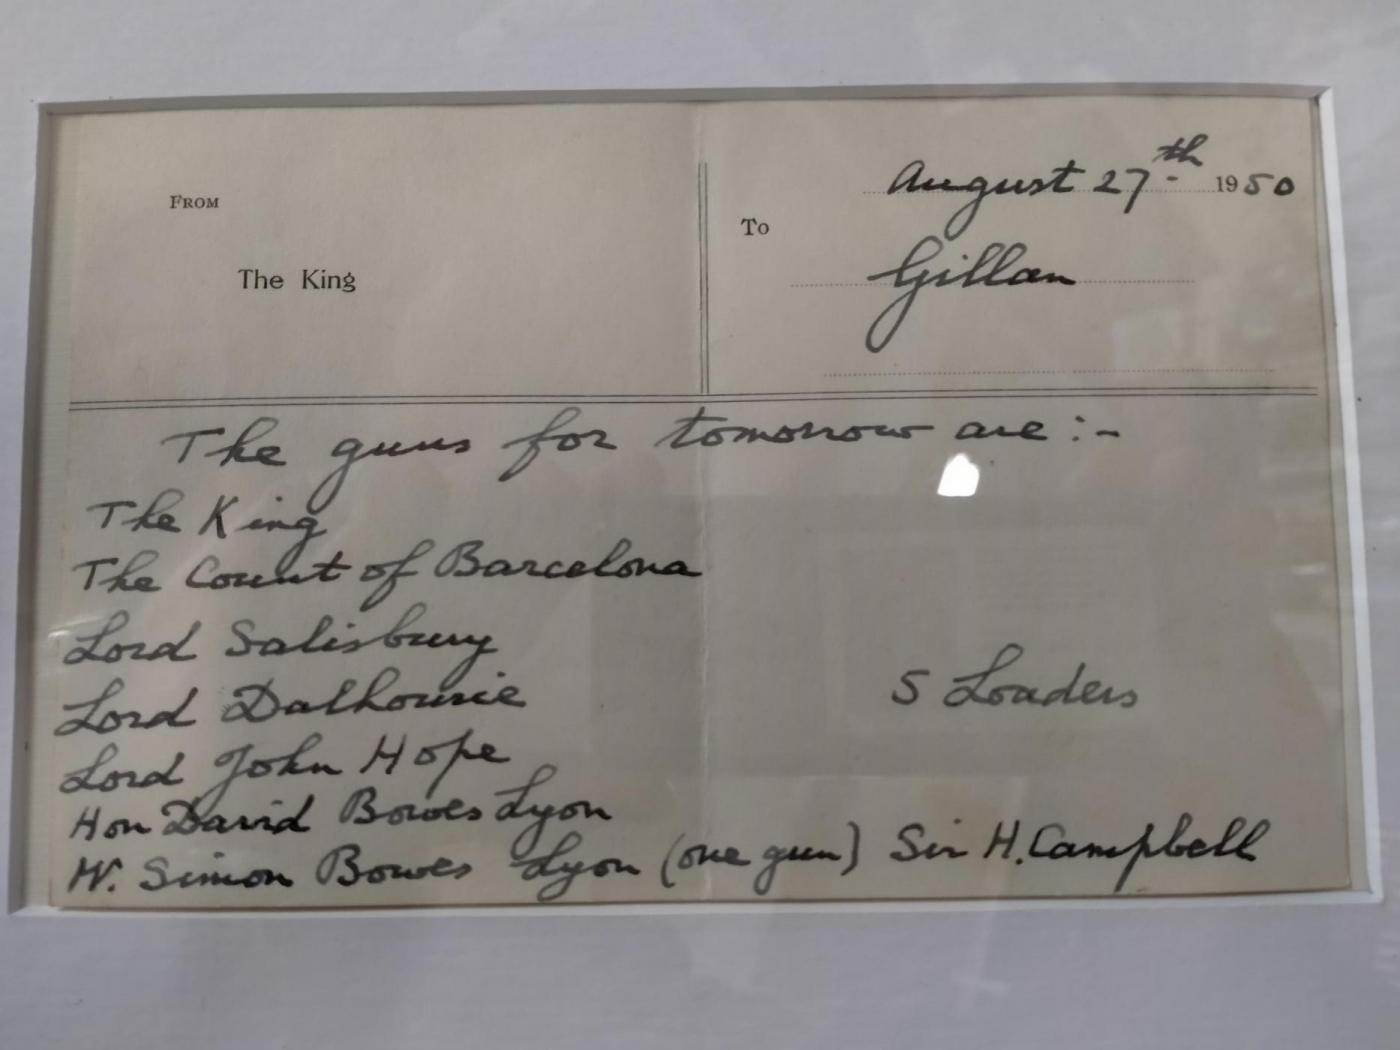 August 27th 1950
From
To
The King
Gillan
The guns for tomorrow are :-
The King
The Count of Barcelona
Lord Salisbury
Lord Dalhousie
5 Loaders
Lord John Hope
Hon David Bowes Lyon
M. Simon Bowes Lyon (one gun) Sir H. Campbell